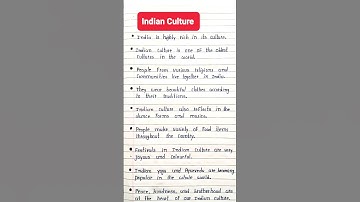 Indian Culture
India is highly rich in its culture.
Indian Culture is one of the oldest
Cultures in the world.
People from various religions and
Communities live together in India.
They wear beautiful clothes according
to their traditions.
Indian Culture also reflects in the
dance forms and music.
People make variety of food items
throughout the Country.
Festivals in Indian Culture are very
Joyous and Colourful.
Indian yoga and Ayurveda are becoming
popular in the whole world.
Peace, Kindness, and brotherhood are
at the heart of our Indian Culture.